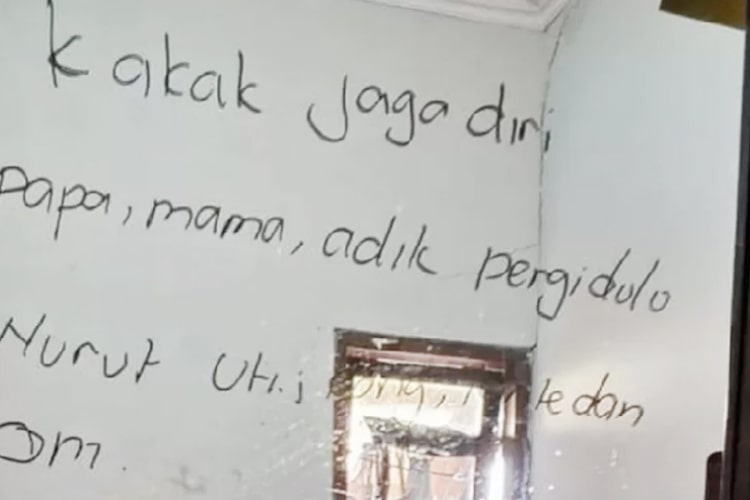 Kakak jaga diri
Papa, mama, adik pergi dulo
Nurut Uti, dan
Om.